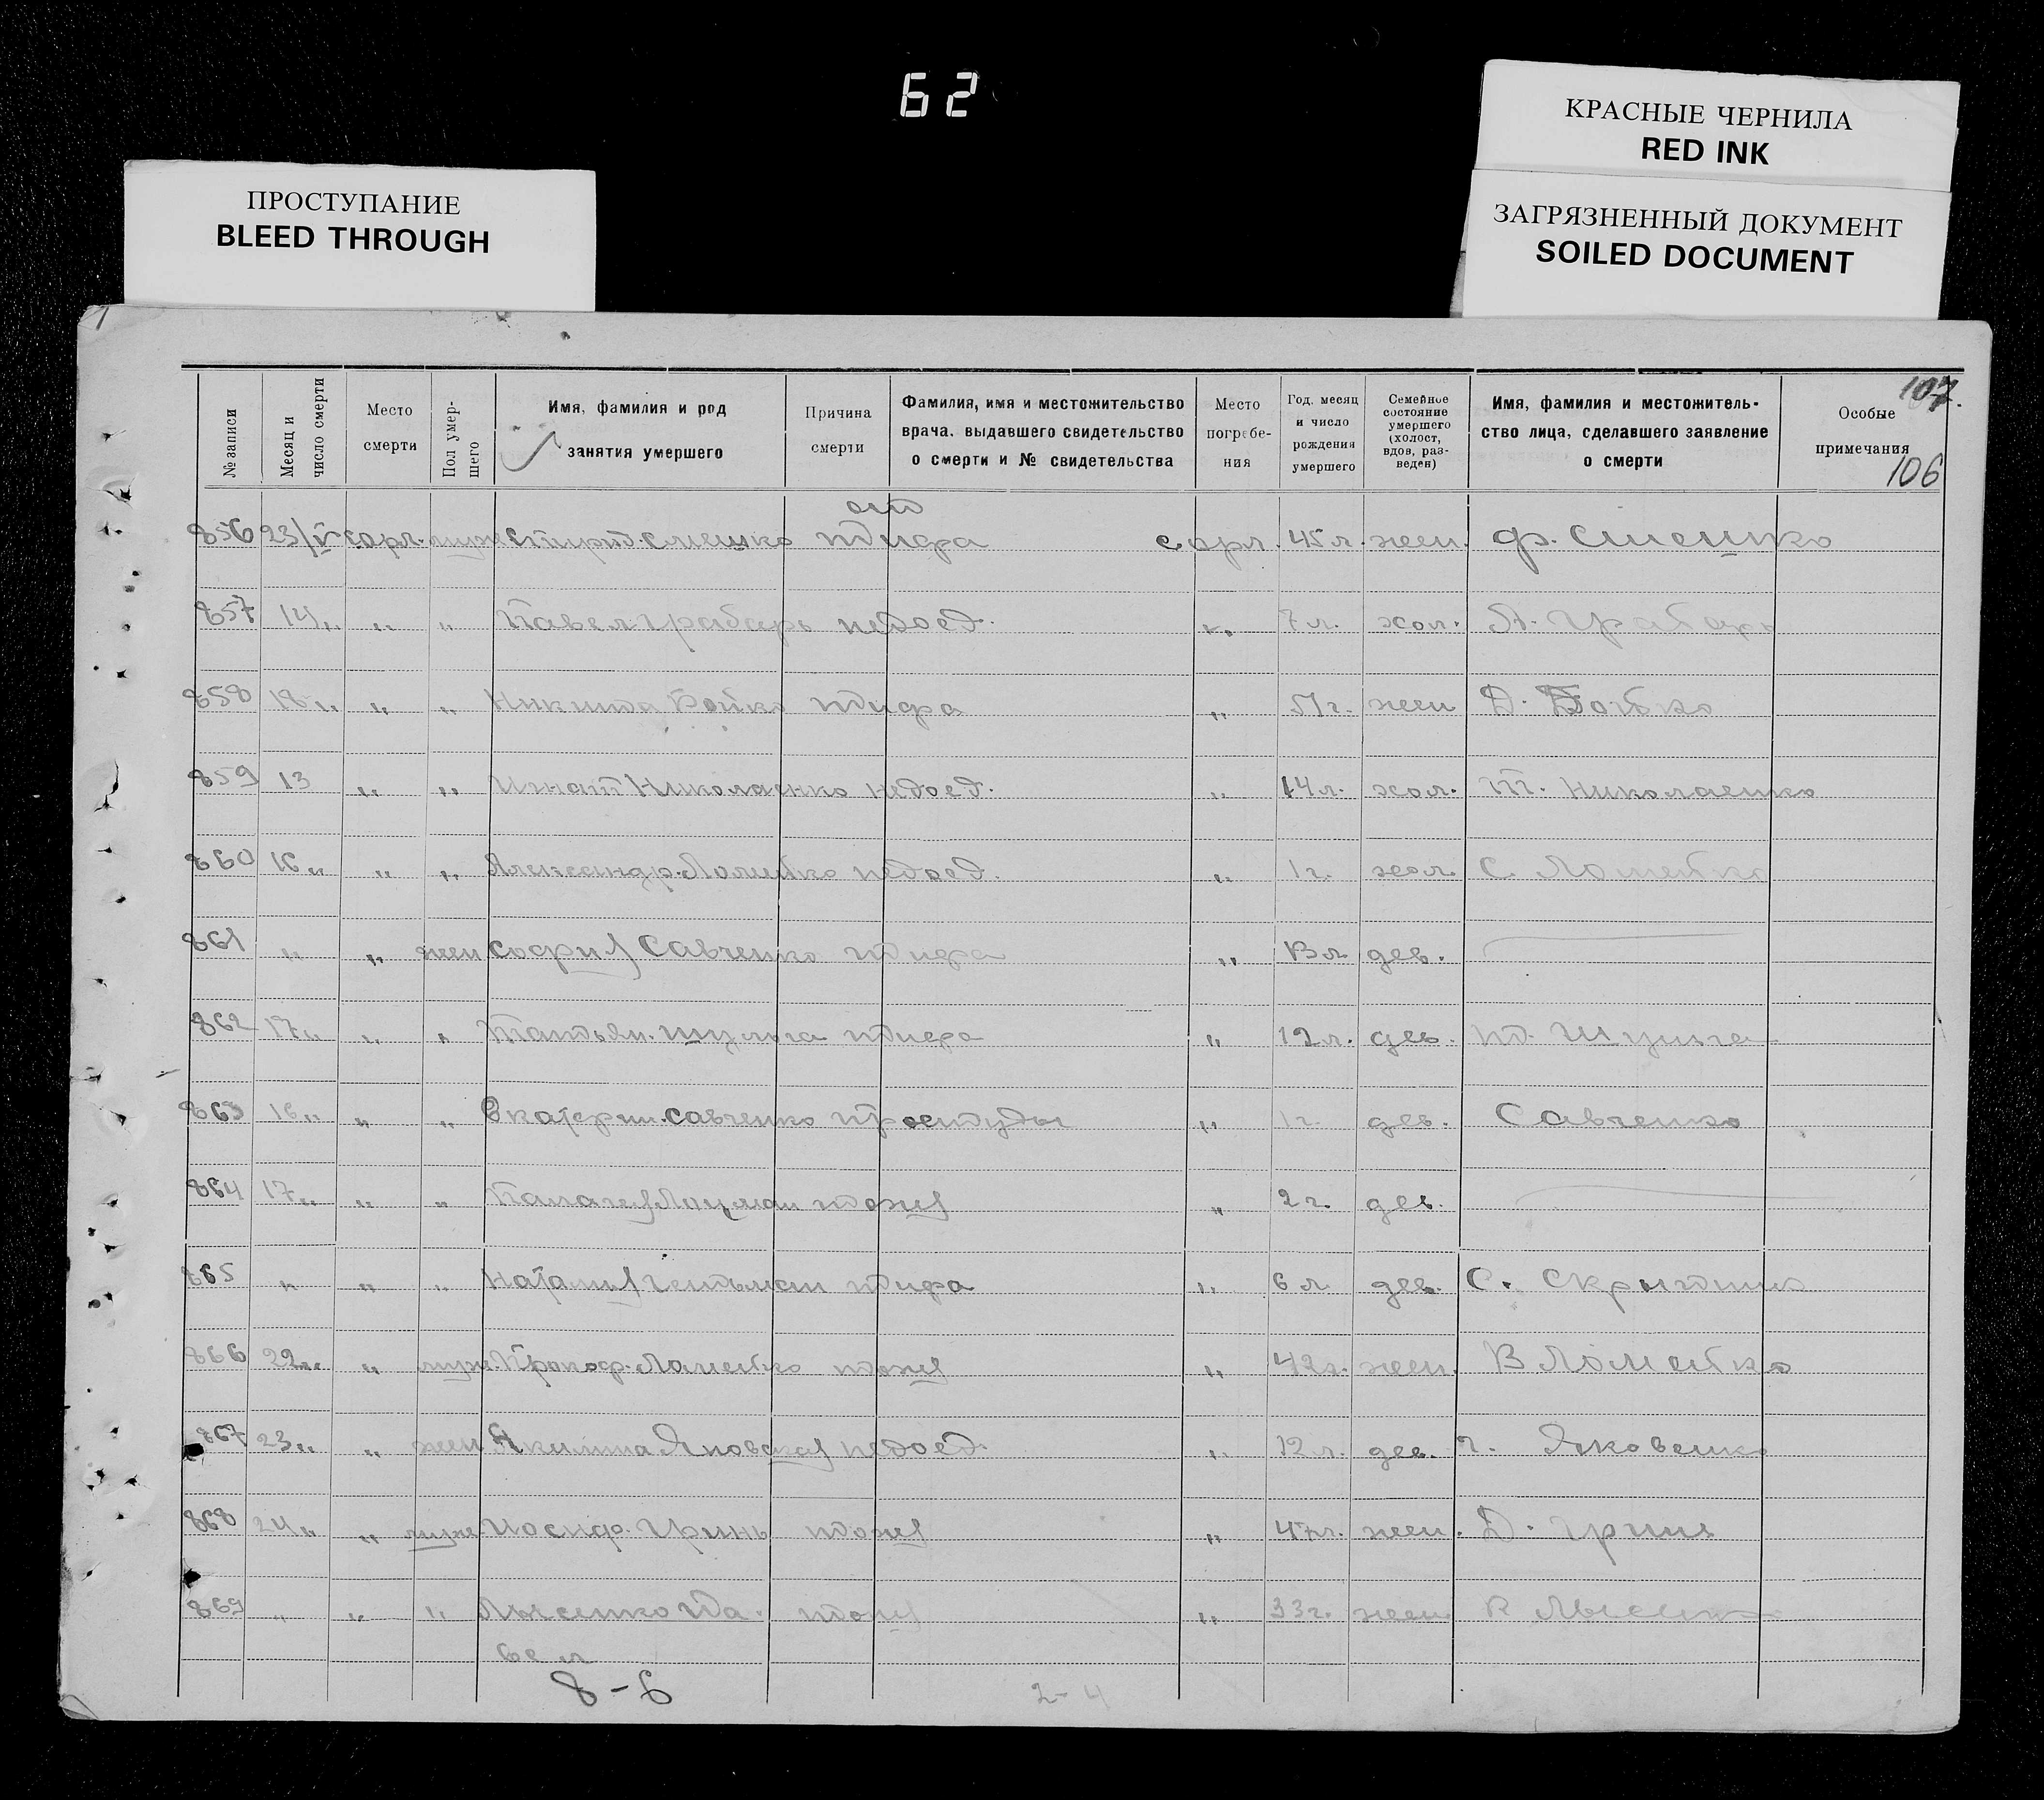 62
КРАСНЫЕ ЧЕРНИЛА
RED INK
ПРОСТУПАНИЕ
BLEED THROUGH
ЗАГРЯЗНЕННЫЙ ДОКУМЕНТ
SOILED DOCUMENT
107.
№ записи
Месяц и число смерти
Место смерти
Пол умер- шего
Имя, фамилия и род занятия умершего
Причина смерти
Фамилия, имя и местожительство врача, выдавшего свидетельство о смерти и № свидетельства
Место погребе- ния
Год, месяц и число рождения умершего
Семейное состояние умершего (холост, вдов, раз- веден)
Имя, фамилия и местожитель- ство лица, сделавшего заявление о смерти
Особые примечания
106
от
856 23/V сорл. муж Смешко тифа сорл. 45 л. жен. Ф. Смешко
857 14 „ „ „ Павел Грабарь недоед. „ 7 л. хол. Грабарь
858 18 „ „ „ Никита Бойко тифа „ 51 г. жен Д. Бойко
859 13 „ „ Игнат Николаенко недоед. „ 14 л. хол. Т. Николаенко
860 16 „ „ „ Александр. Ломейко недоед. „ 1 г. хол. С. Ломейко
861 „ „ жен София Савченко тифа „ 13 л дев.
862 17 „ „ „ Татьян. Шульга тифа „ 12 л. дев. Т. Шульга
863 16 „ „ „ Екатерин. Савченко простуды „ 1 г. дев. Савченко
864 17 „ „ „ Лоцман тоже „ 2 г. дев.
865 „ „ „ Наталия Гетьман тифа „ 6 л дев. С.
866 22 „ „ муж. Прокоф. Ламейко тоже „ 42 г. жен. В Ломейко
867 23 „ „ жен Акилина Яновская недоед. „ 12 л. дев. Г. Яковенко
868 24 „ „ муж. Иосиф. Гринь тоже „ 47 г. жен. Д. Гринь
869 „ „ „ Лысенко Па- тоже „ 33 г. жен.
вел
8-6
2-4